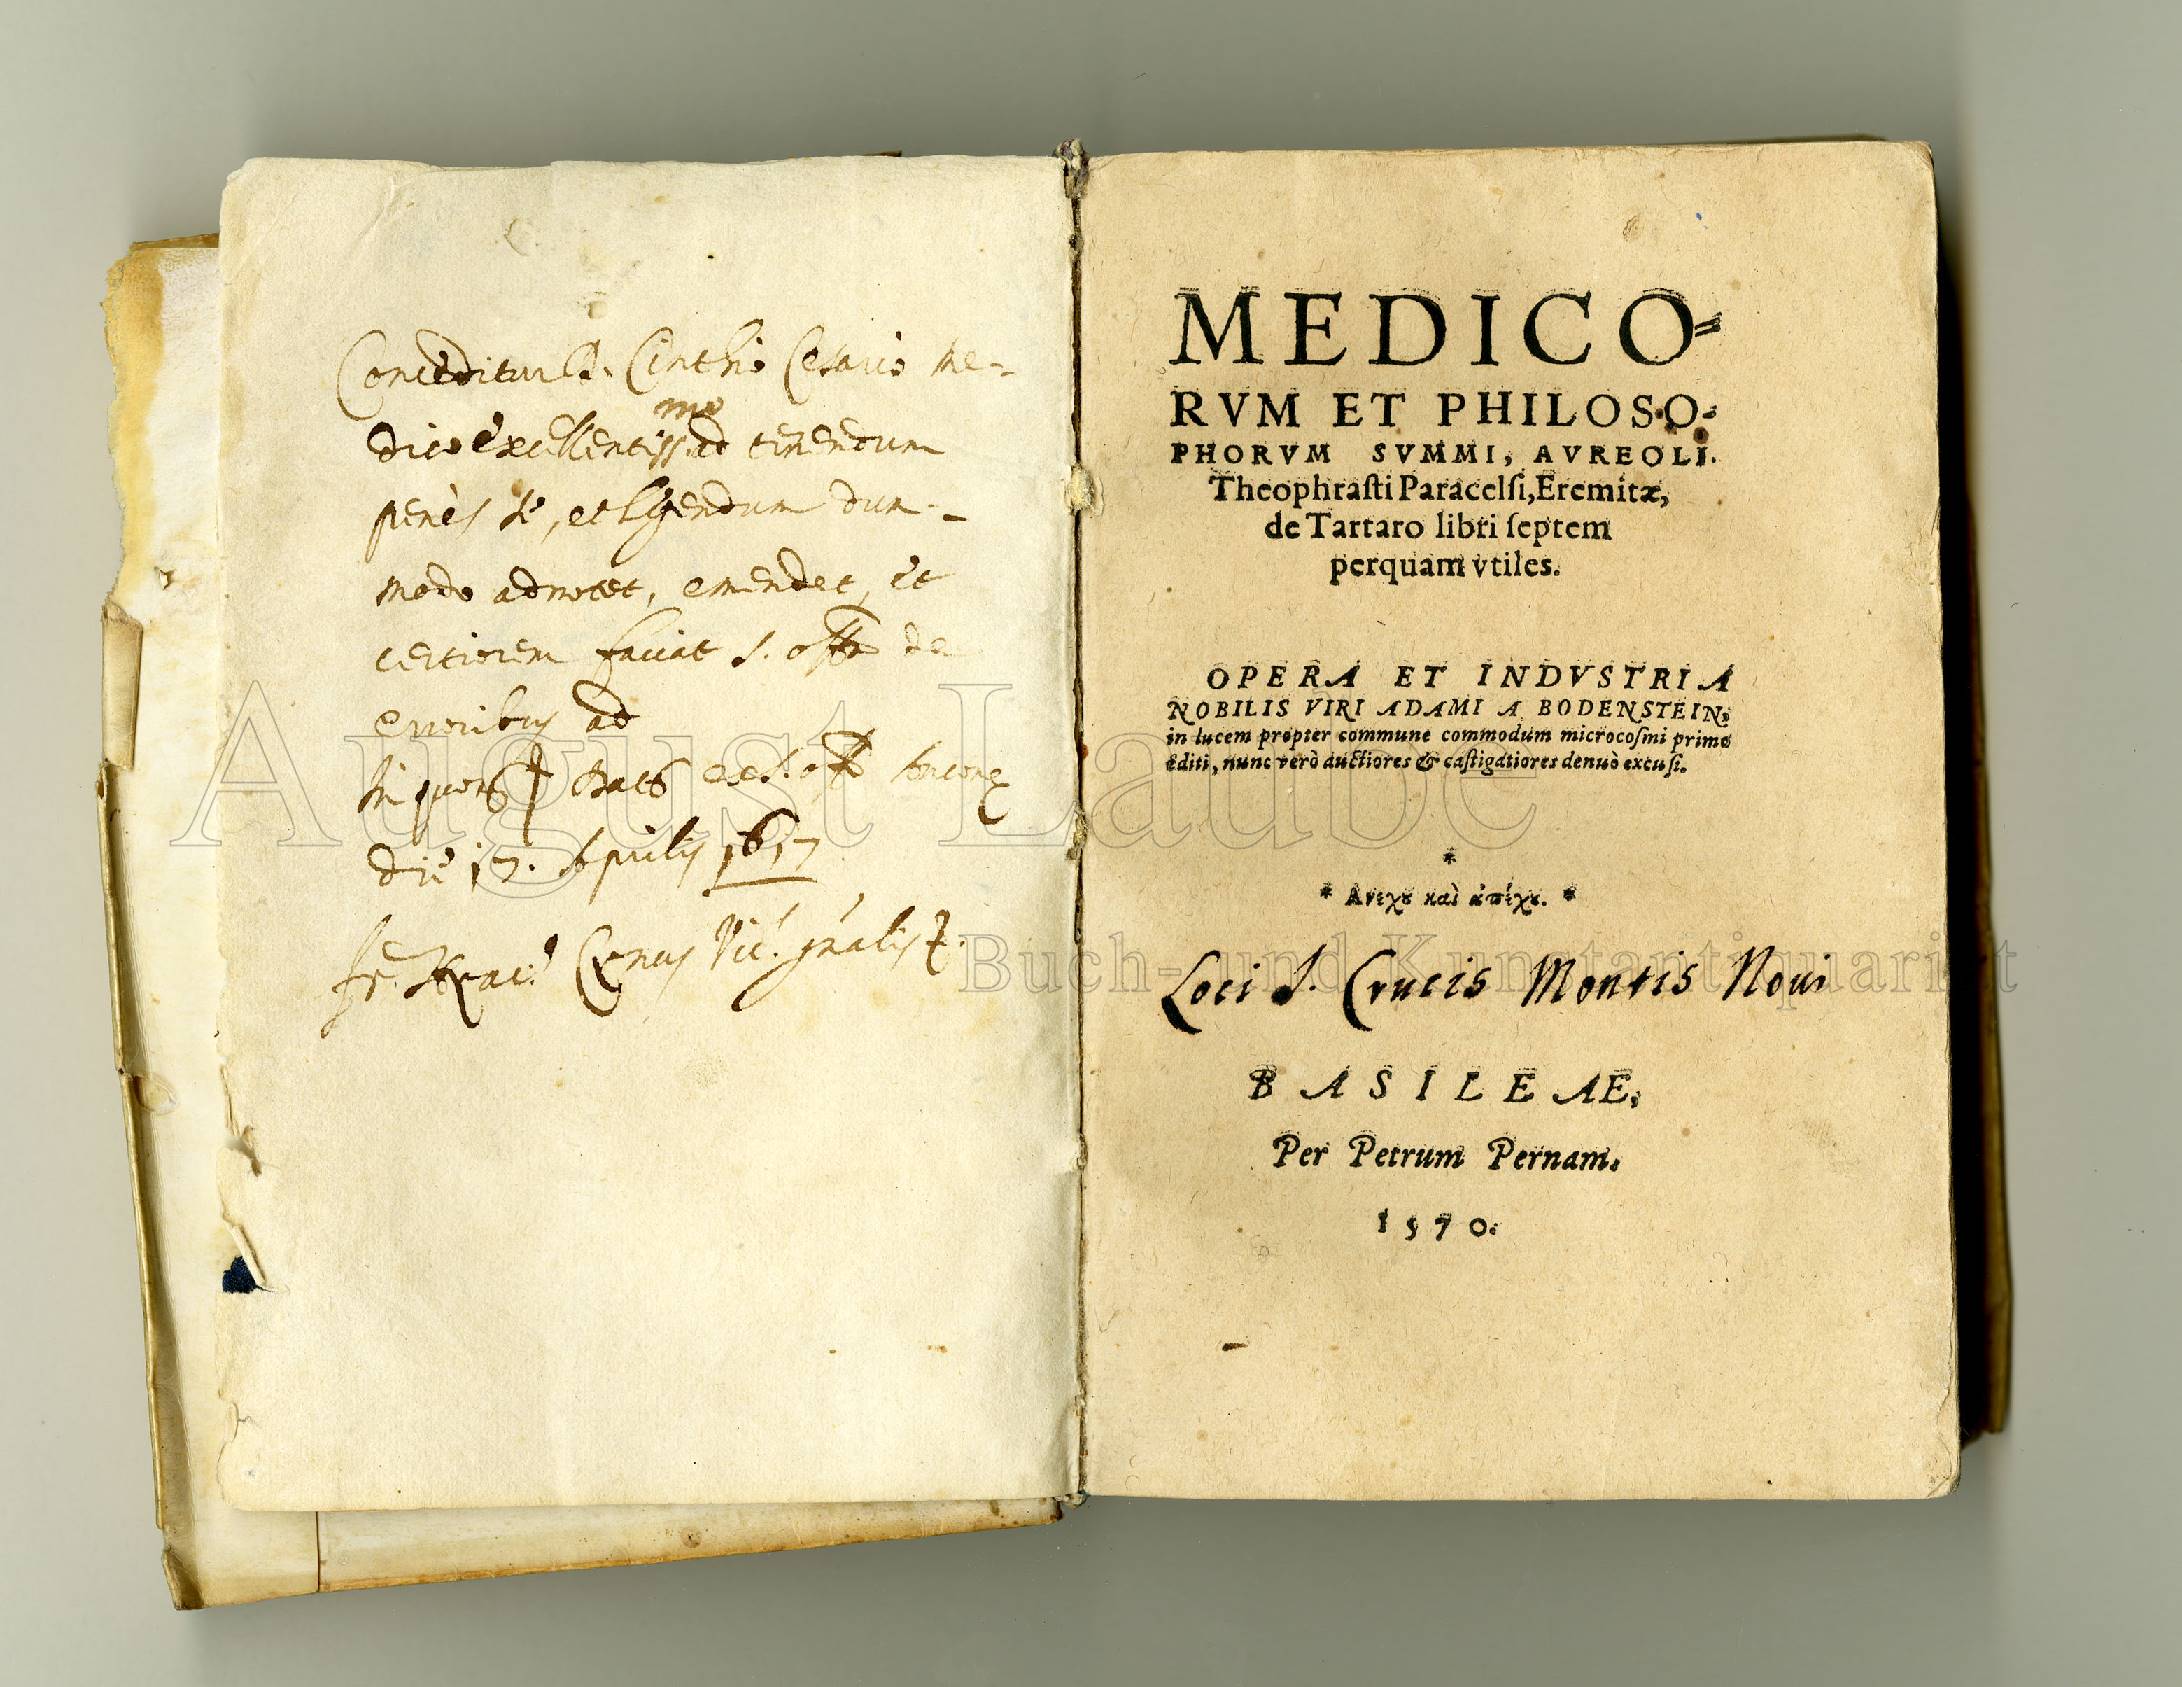 Conceditur D. Cinthio Cesario Me-
dico excellentiss.mo ad tenendum
penès se, et legendum dum-
modo adnotet, emendet, et
certiorem faciat S. Offm de
erroribus ad
die 17. Aprilis 1617
MEDICO=
RVM ET PHILOSO-
PHORVM SVMMI, AVREOLI.
Theophraſti Paracelſi, Eremitæ,
de Tartaro libri ſeptem
perquam vtiles.
OPERA ET INDVSTRIA
NOBILIS VIRI ADAMI A BODENSTEIN,
in lucem propter commune commodum microcoſmi primo
editi, nunc verò auctiores & caſtigatiores denuò excuſi.
*
* Ανεχε καὶ ἀπέχε. *
Loci S. Crucis Montis Noui
BASILEAE,
Per Petrum Pernam.
1570.
August Laube
Buch- und Kunstantiquariat